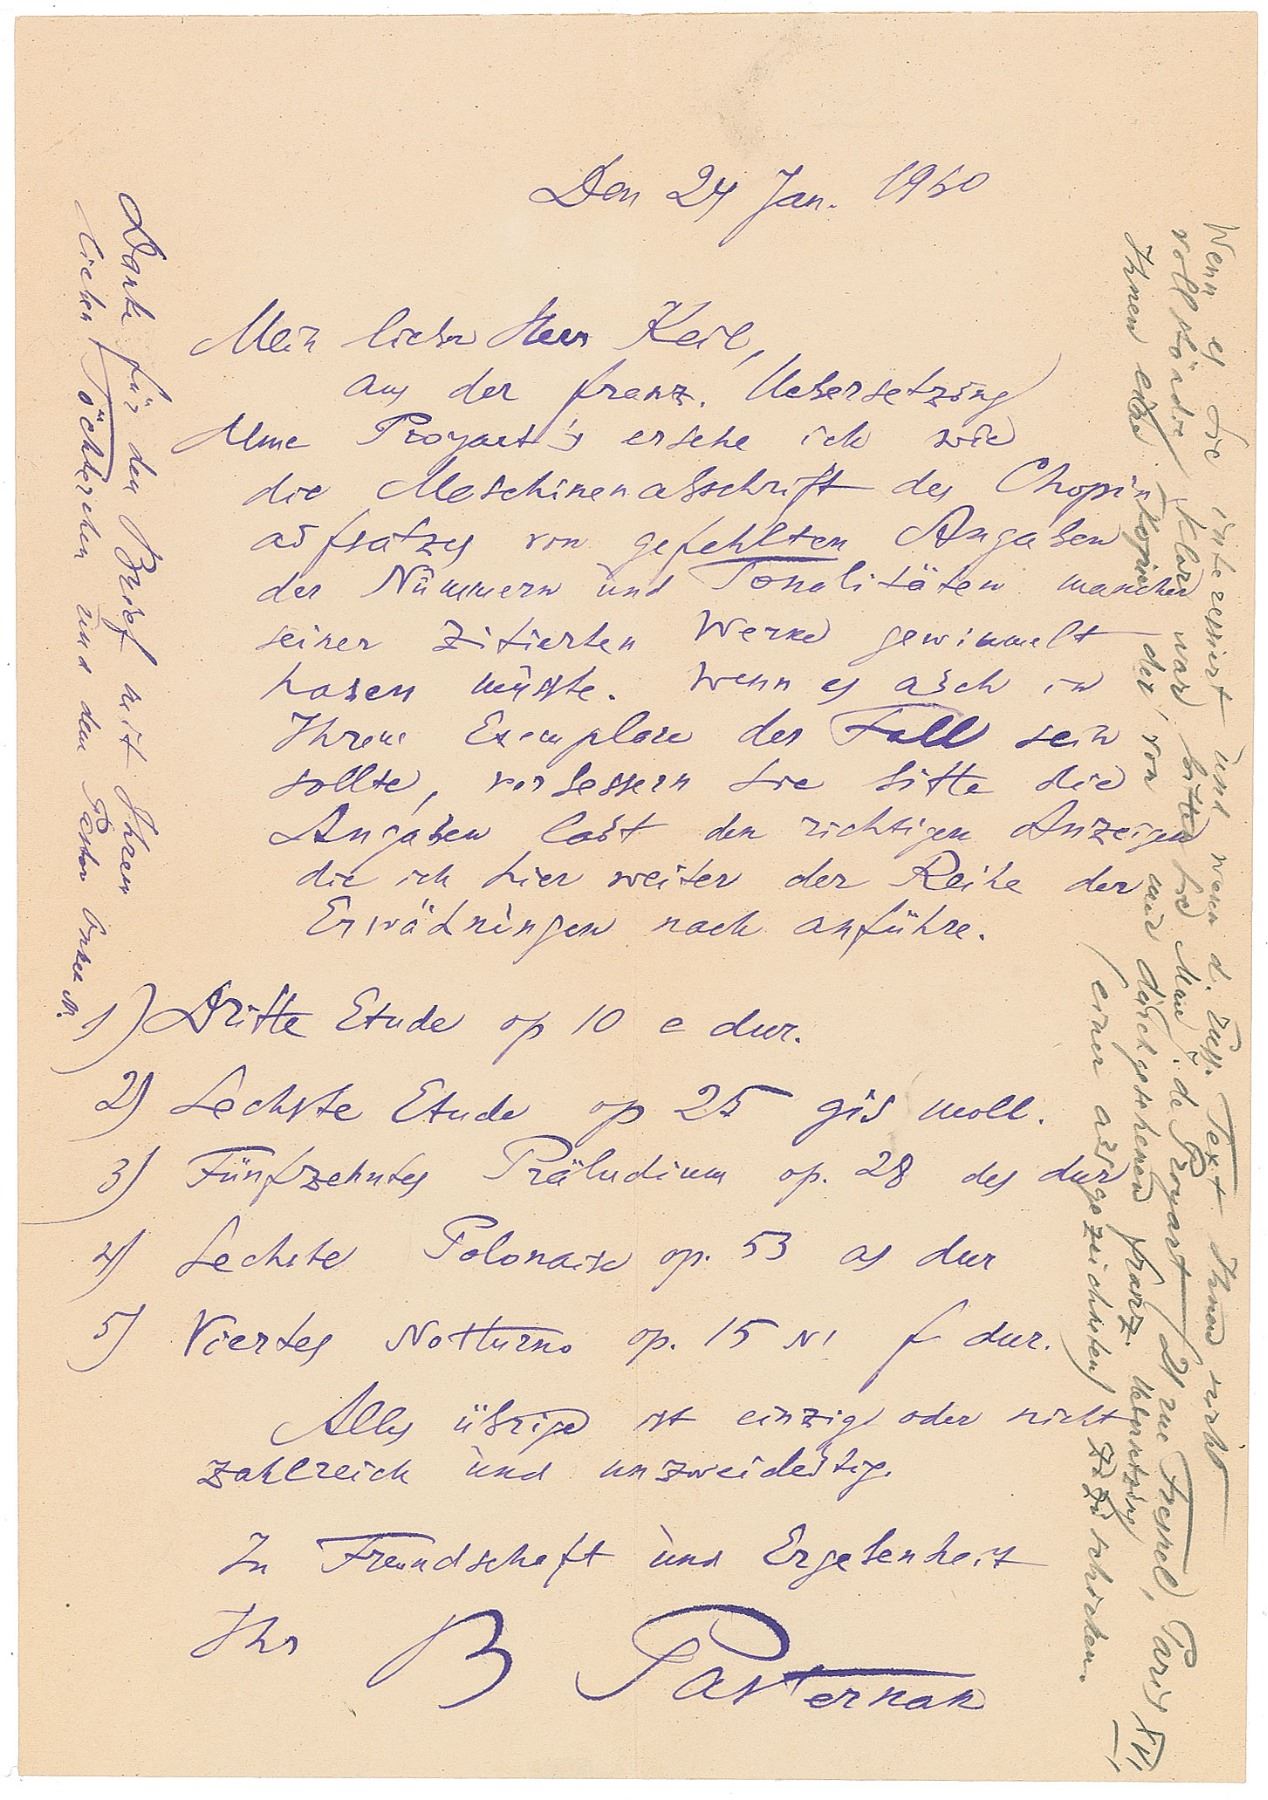 Den 24 Jan. 1960
Mein lieber Herr Keil,
aus der franz. Uebersetzung
Mme Proyart's ersehe ich wie
die Maschinenabschrift des Chopin
aufsatzes von gefehlten Angaben
der Nummern und Tonalitäten mancher
seiner zitierten Werke gewimmelt
haben müsste. Wenn es auch in
Ihrem Exemplare der Fall sein
sollte, verbessern Sie bitte die
Angaben laut den richtigen Anzeigen
die ich hier weiter der Reihe der
Erwähnungen nach anführe.
1) Dritte Etude op 10 e dur.
2) Sechste Etude op 25 gis moll.
3) Fünfzehntes Präludium op. 28 des dur
4) Sechste Polonaise op. 53 as dur
5) Viertes Notturno op. 15 N1 f dur.
Alles übrige ist einzig oder nicht
zahlreich und unzweideutig.
In Freundschaft und Ergebenheit
Ihr B Pasternak
Danke für den Brief mit Ihren
lieben Töchterchen und dem
Wenn es Sie interessiert und wenn d. russ. Text Ihnen nicht
vollständig klar war, bitten Sie Mme. de Proyart (21 rue Fresnel, Paris XVI)
Ihnen eine Kopie der, von mir durchgesehenen franz. Uebersetzung
(einer ausgezeichneten) zuzuschicken.